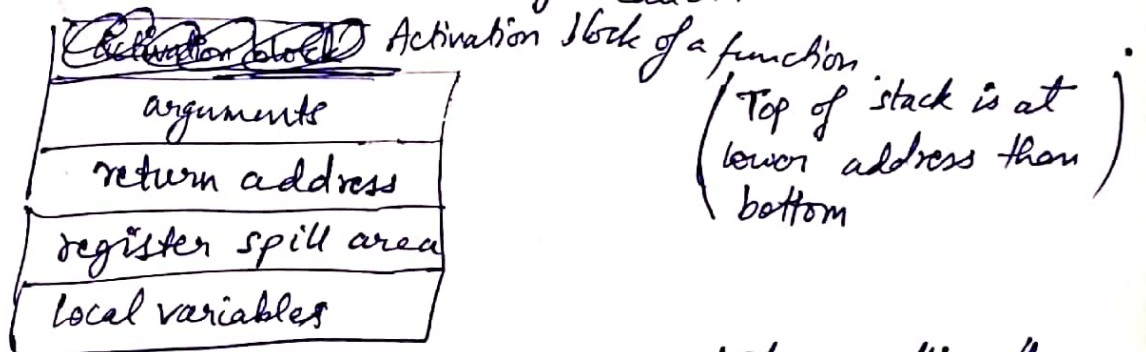 activation block Activation block of a function
arguments
return address
register spill area
local variables
(Top of stack is at
lower address than
bottom)